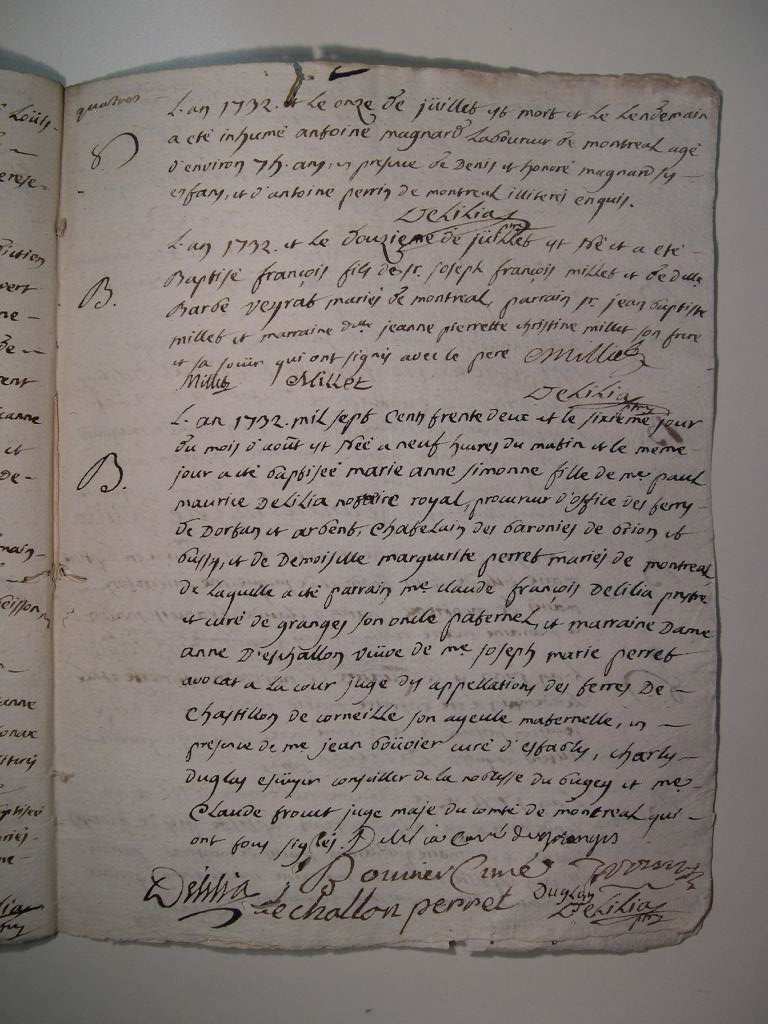 quatres
L'an 1732. et le onze de jüillet est mort et le lendemain
S.
a eté inhumé antoine magnard laboureur de montreal agé
d'environ 74. ans, en presence de Denis et honoré magnard ses
enfans, et d'antoine perrin de montreal illiterés enquis.
Delilia
L'an 1732. et le douzieme de jüillet est née et a eté
B.
Baptisé françois fils de sr. joseph françois millet et de dlle
Barbe veyrat mariés de montreal, parrain sr. jean baptiste
millet et marraine dlle jeanne pierrette christine millet son frere
et sa soeür qui ont signés avec le pere Millet
Millet Millet
Delilia
L'an 1732. mil sept cent trente deux et le sixieme jour
du mois d'août est née a neuf heures du matin et le meme
B.
jour a eté baptiseé marie anne simonne fille de me paul
maurice Delilia nottaire royal, procureur d'office des terres
de Dortan et arbent, chatelain des baronies de orion et
bussy, et de Demoiselle marguerite perret mariés de montreal
de laquelle a eté parrain me claude françois Delilia prestre
et curé de granges son oncle paternel, et marraine Dame
anne D'eschallon veüve de me joseph marie perret
avocat a la cour juge des appellations des terres De
Chastillon de corneille son ayeule maternelle, en
presence de me jean boüvier curé d'estably, charles
Duglas escüyer conseiller de la noblesse du bugey et me
Claude frouet juge maje du comté de montreal qui
ont tous signés. Delilia Curé de granges
Delilia j Bouvier Curé
dechallon perret Duglas Delilia